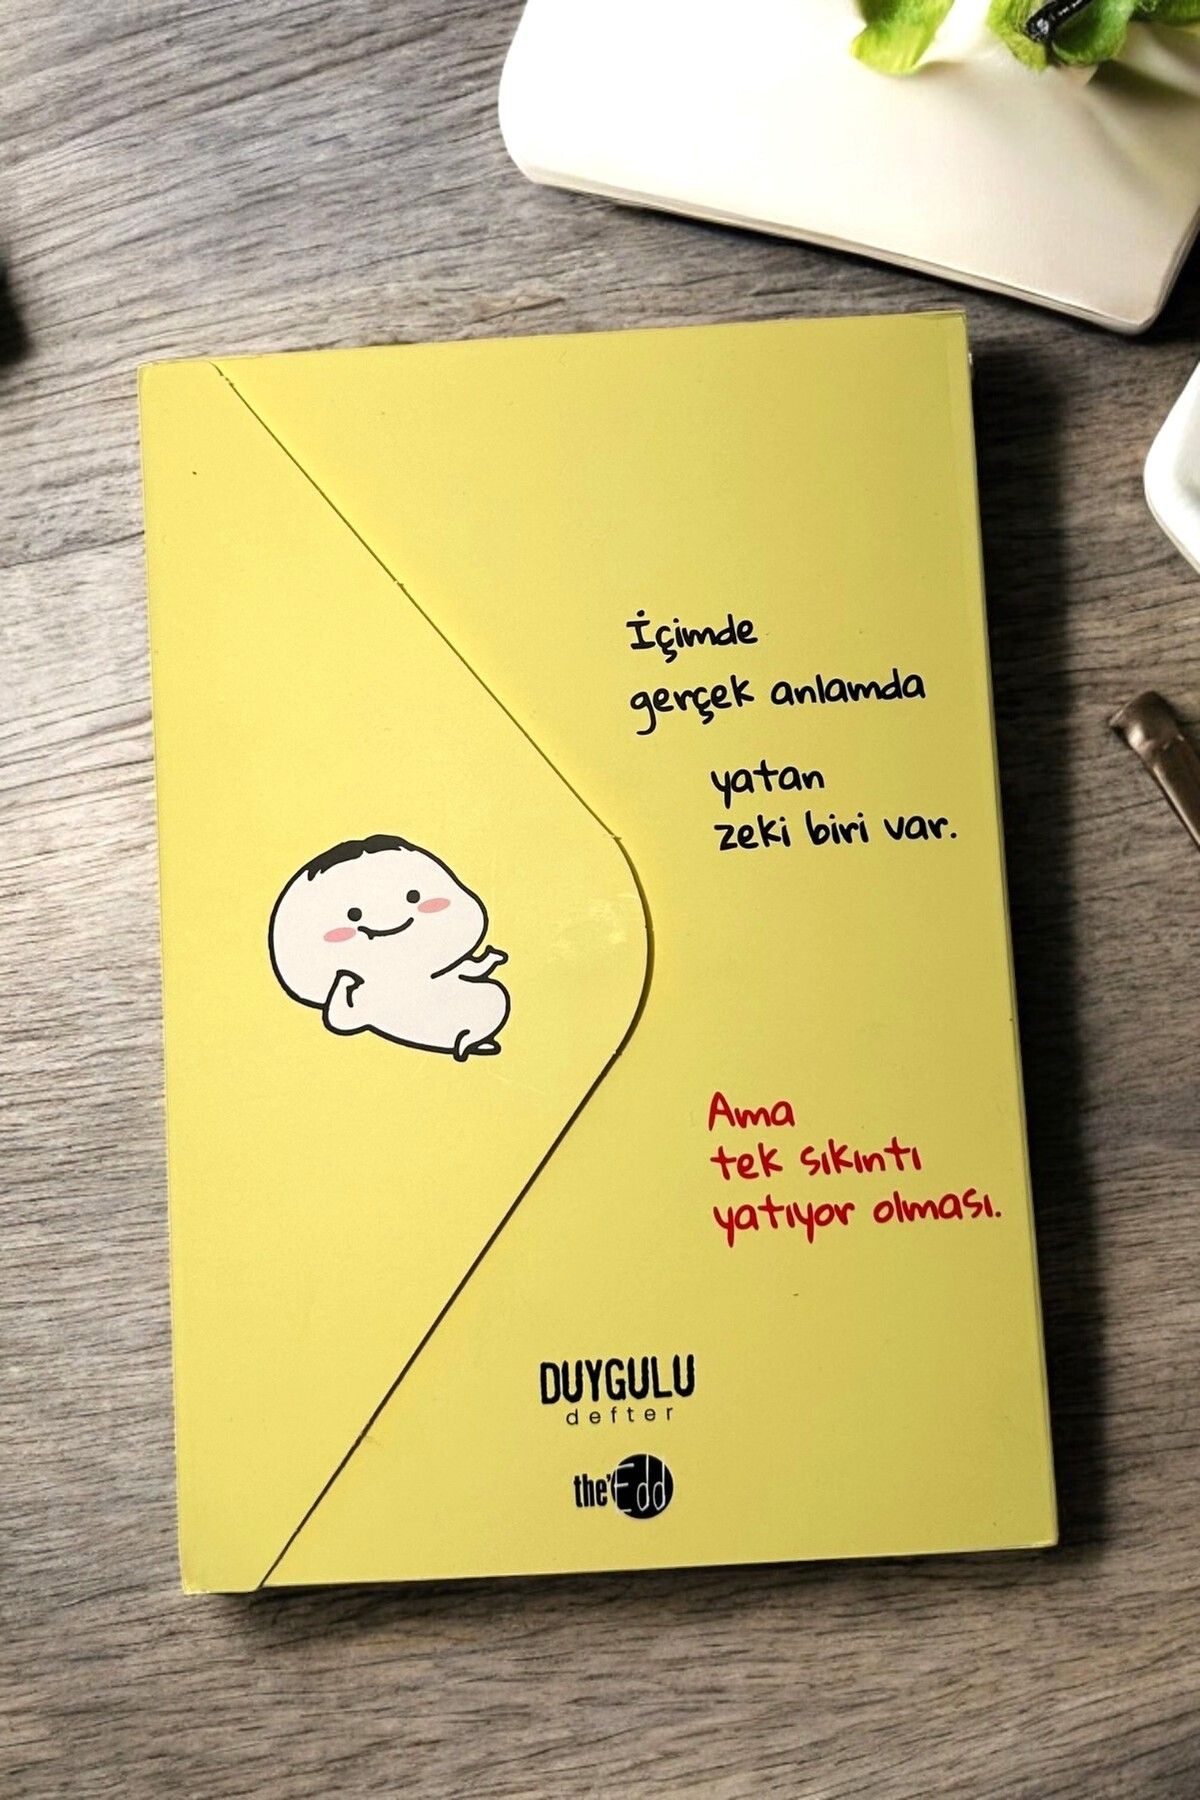 İçimde
gerçek anlamda
yatan
zeki biri var.
Ama
tek sıkıntı
yatıyor olması.
DUYGULU
defter
the'Edd